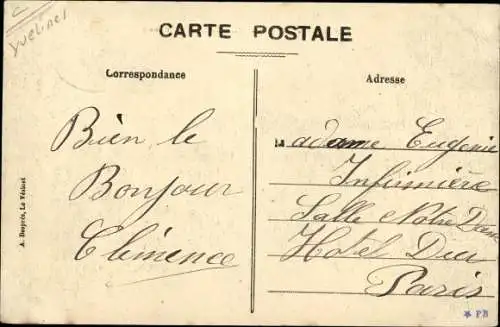 C
Yvelines
CARTE POSTALE
Correspondance
Adresse
Bien le
Bonjour
Clémence
Madame Eugenie
Infirmière
Salle Notre Dame
Hotel Dieu
Paris
A. Desprès, Le Vésinet
* PB